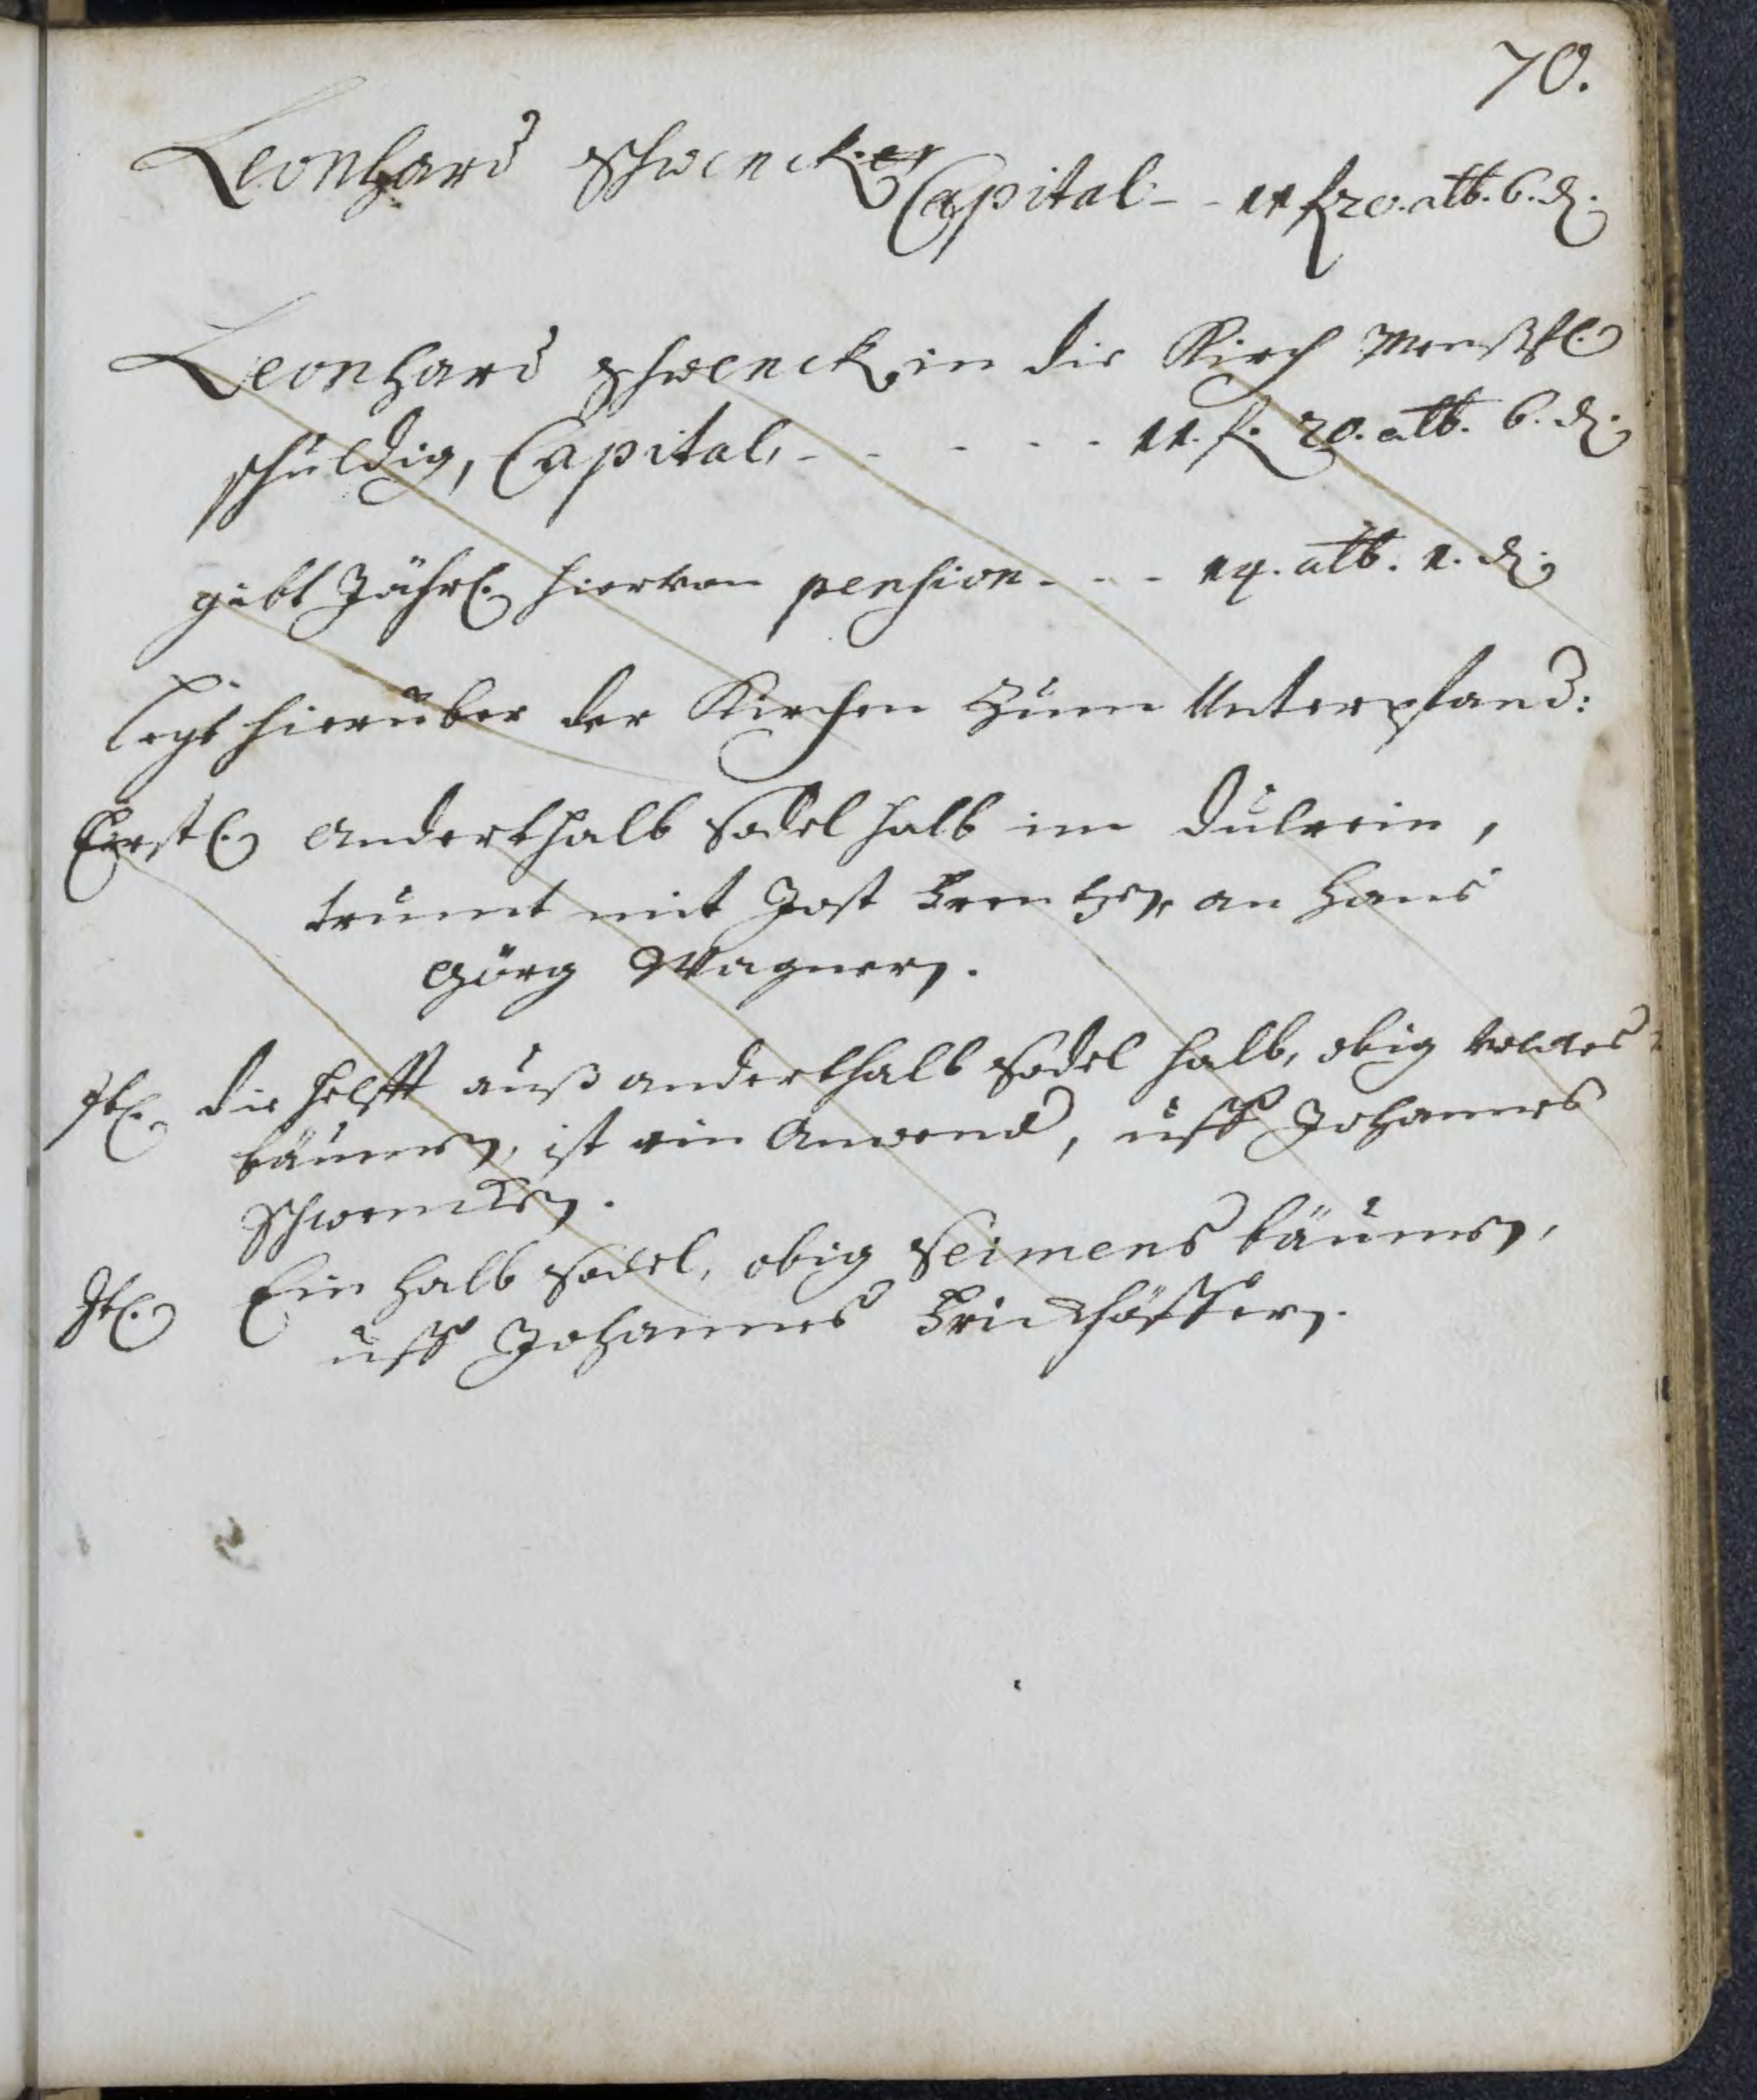 70.
Leonhard Schwencker
Capital: - - 11 f 20. alb. 6. d.
Leonhard Schwenck in die Kirch
schuldig, Capital, - - - - - 11. f. 20. alb. 6. d.
gibt Jährl. hiervon pension - - - 14. alb. 1. d.
legt hierüber der Kirchen zum Unterpfand:
Erstl. Anderthalb Sodel halb im
trumt mit Jost an Hans
Görg Wagnern.
Itl. die helfft auß anderthalb Sodel halb, obig
bäumen, ist ein Anwend, uff Johannes
Schwencken.
Itl. Ein halb Sodel, obig Seimens bäumen,
uff Johannes Brickhöffern.